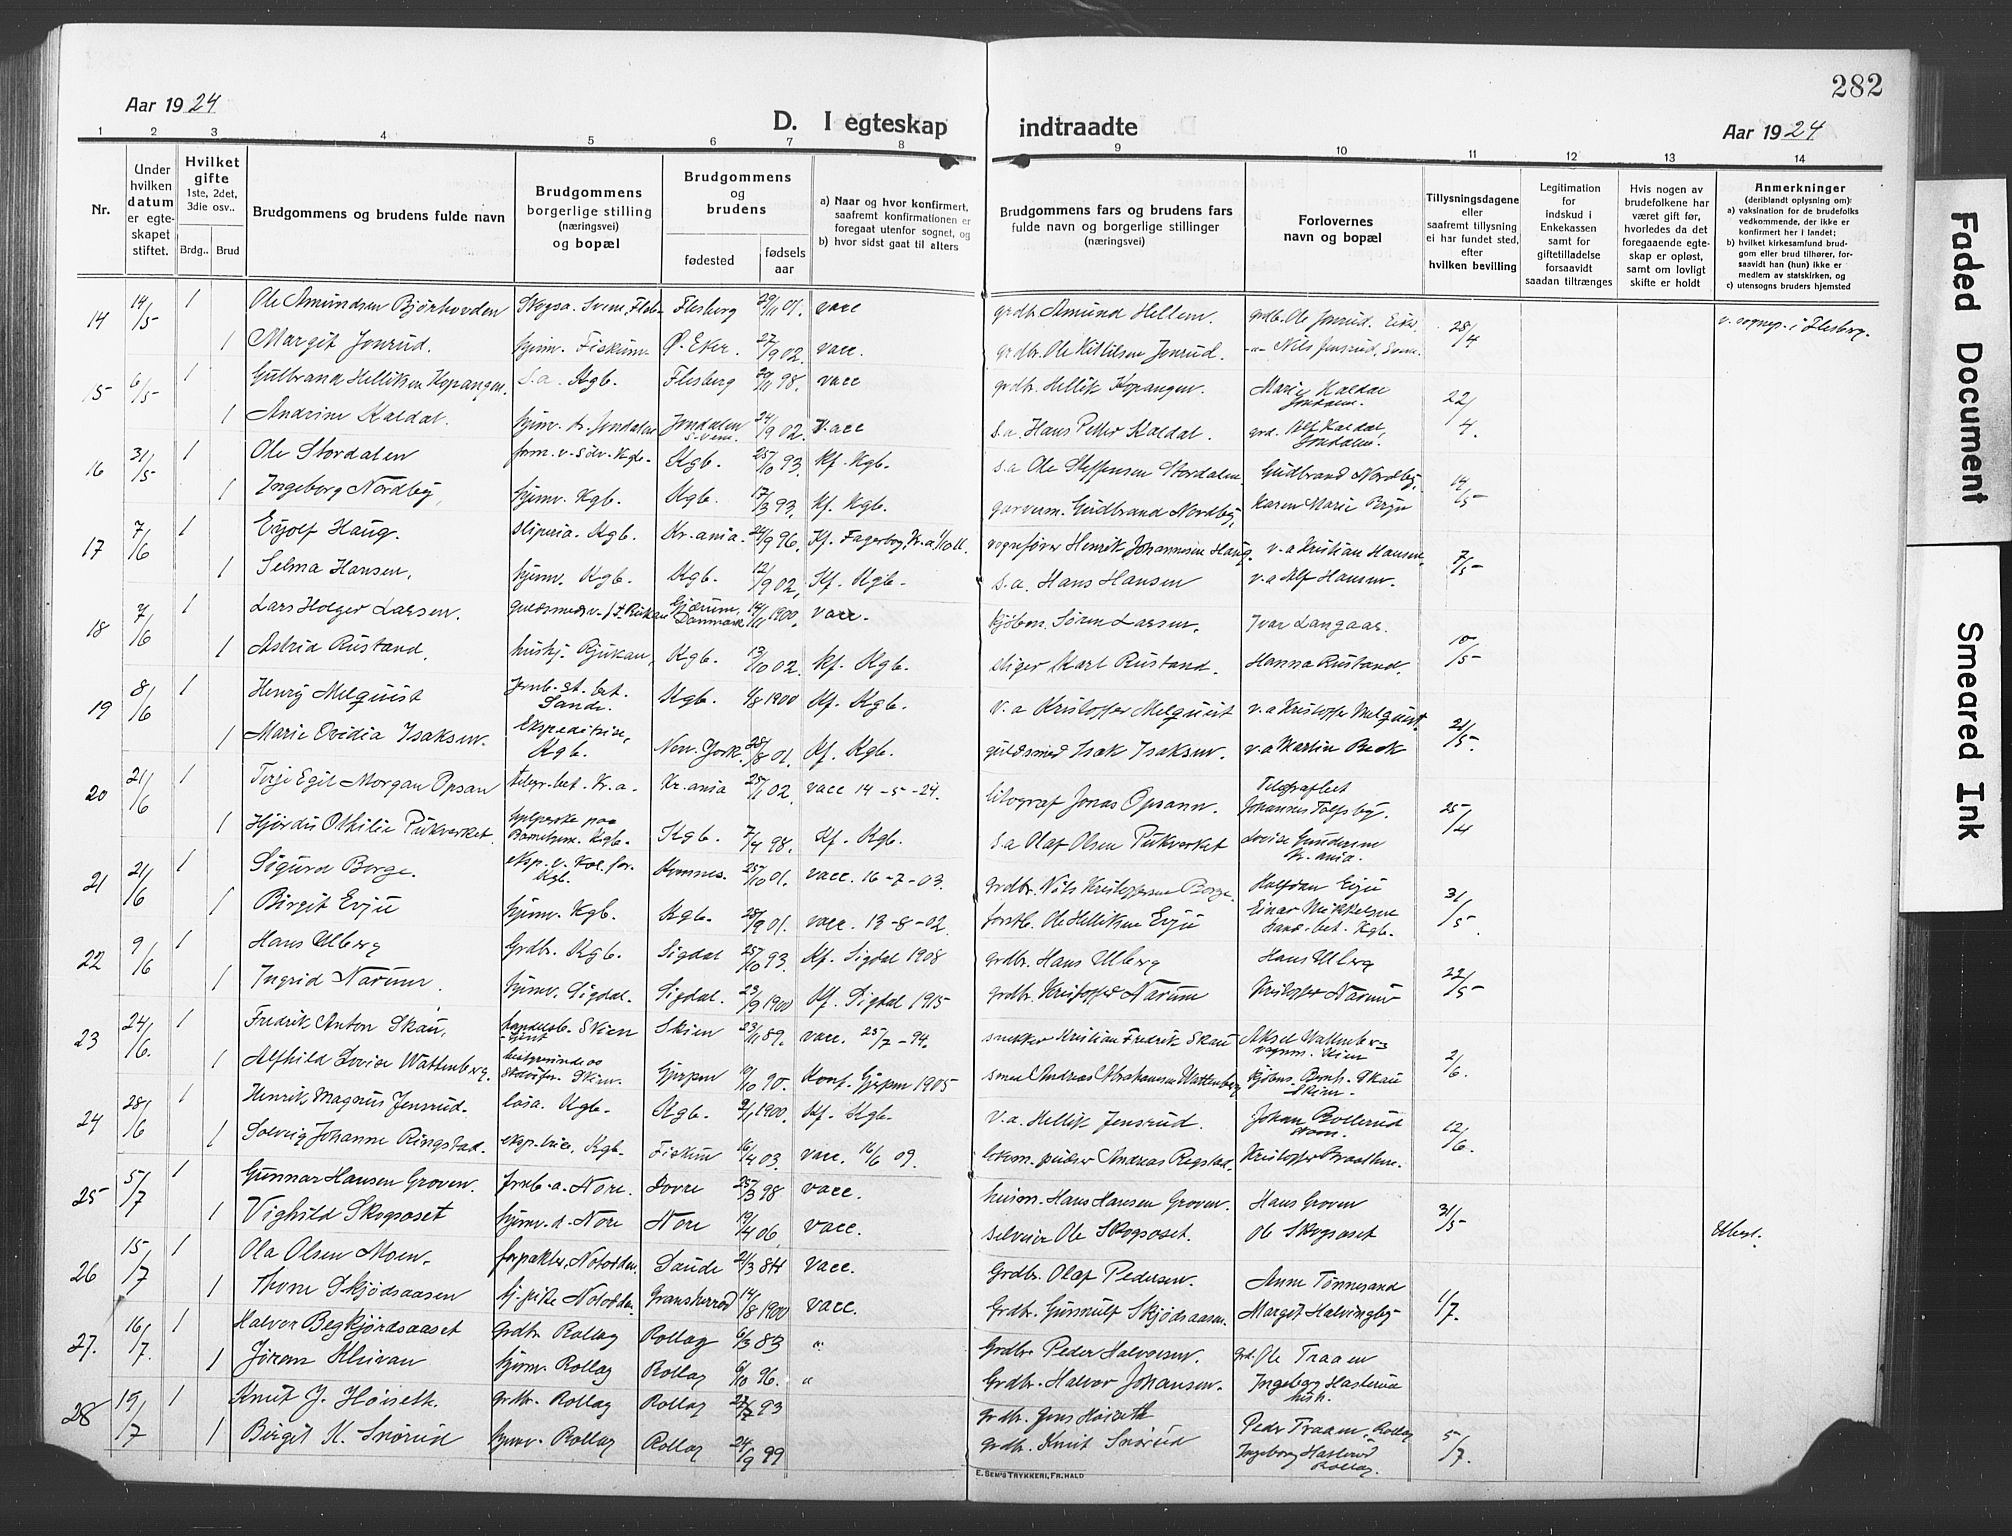 282
Aar 1924
D. I egteskap indtraadte
Aar 1924
1 2 3 4 5 6 7 8 9 10 11 12 13 14
Nr.
Under hvilken datum er egteskapet stiftet.
Hvilket gifte 1ste, 2det, 3die osv..
Brdg.. Brud
Brudgommens og brudens fulde navn
Brudgommens borgerlige stilling (næringsvei) og bopæl
Brudgommens og brudens
fødested
fødsels aar
a) Naar og hvor konfirmert, saafremt konfirmationen er foregaat utenfor sognet, og
b) hvor sidst gaat til alters
Brudgommens fars og brudens fars fulde navn og borgerlige stillinger (næringsvei)
Forlovernes navn og bopæl
Tillysningsdagene eller saafremt tillysning ei har fundet sted, efter hvilken bevilling
Legitimation for indskud i Enkekassen samt for giftetilladelse forsaavidt saadan tiltrænges
Hvis nogen av brudefolkene har været gift før, hvorledes da det foregaaende egteskap er opløst, samt om lovligt skifte er holdt
Anmerkninger (deriblandt oplysning om):
a) vaksination for de brudefolks vedkommende, der ikke er konfirmert her i landet;
b) hvilket kirkesamfund brudgom eller brud tilhører, forsaavidt han (hun) ikke er medlem av statskirken, og
c) utensogns bruders hjemsted
14 14/5 1 Ole Amundsen Bjørhovden Flesberg 29/11 01. vacc grdbr. Amund Hellem. grdbr. Ole Jonrud. 28/4 v. sognep. i Flesberg.
1 Margit Jonrud. hjemv. Fiskum Ø. Eker. 27/9 02. vacc. grdbr. Ole Kittilsen Jonrud. Nils Jensrud, Svene
15 6/5 1 Gulbrand Helliksen Kopangen. s.a. Kgb. Flesberg 20/11 98. vacc grdbr. Hellik Kopangen. Marie Kaldal Jondalen. 22/4
1 Andrine Kaldal. hjemv. Jondalen Jondalen Svene. 24/9 02. vacc s.a. Hans Petter Kaldal. grd. Alf Kaldal, Jondalen.
16 31/5 1 Ole Stordalen form. v. Sølv. Kgb. Kgb. 25/10 93. Kf. Kgb. s.a Ole Steffensen Stordalen Gudbrand Nordby. 14/5
1 Ingeborg Nordby, hjemv. Kgb. Kgb. 17/3 93. Kf. Kgb. garverm. Gudbrand Nordby, Karen Marie Berju
17 7/6 1 Eyolf Haug. sliperia. Kgb. Kr.ania. 24/9 96. Kf. Fagerborg, Kr.a 1/10 11. vognfører Henrik Johannesen Haug. v.a Kristian Hansen. 7/5
1 Selma Hansen. hjemv. Kgb. Kgb. 12/9 02. Kf. Kgb. s.a. Hans Hansen v.a Alf Hansen.
18 7/6 1 Lars Holger Larsen. Gjærum, Danmark 14/11 1900. vacc. kjøbm. Søren Larsen. Ivar Langaar. 10/5
1 Astrid Rustand, hushj. Rjukan, Kgb. 13/10 02. Kf. Kgb. stiger Karl Rustand. Hanna Rustand.
19 8/6 1 Henry Melquist Jrnb. st. bet. Sande. Kgb. 6/8 1900 Kf. Kgb. v.a Kristoffer Melquist v.a Kristoffer Melquist. 21/5.
1 Marie Ovidia Isaksen. Ekspeditrise, Kgb. New. York. 28/8 01. Kf. Kgb. guldsmed Isak Isaksen. v.a Martin Beck
20 21/6 1 Terje Egil Morgan Opsan telegr. bet. Kr.a. Kr.ania 25/11 02. vacc 14-5-24. litograf Jonas Opsann. Telegrafbet Johannes Tolfsby. 25/4
1 Hjørdis Othilie Pukverket. hjelperske paa Barnehjem. Kgb. Kgb. 7/4 98. Kf. Kgb. s.a Olaf Olsen Pukverket Lovise Gundersen Kr.ania.
21 21/6 1 Sigurd Borge. eksp. v. Kol. for. Kgb. 25/10 01. vacc. 16-7-03. grdbr. Nils Kristoffersen Borge. Halfdan Evju 31/5.
1 Birgit Evju hjemv. Kgb. Kgb. 28/9 01. vacc. 13-8-02. forstb. Ole Helliksen Evju Einar Mikkelsen Hand. bet. Kgb.
22 9/6 1 Hans Ulberg Grdbr. Kgb. Sigdal 25/10 93. Kf. Sigdal 1908 grdbr. Hans Ulberg Hans Ulberg 22/5
1 Ingrid Narum. hjemv. Sigdal. Sigdal. 23/9 1900 Kf. Sigdal 1915 grdbr. Kristoffer Narum Kristoffer Narum
23 24/6. 1 Fredrik Anton Skau, handelsb. Skien Skien 23/11 89. vacc. 25/7-94. snekker Kristian Fredrik Skau Aksel Wattenberg Skien 2/6.
1 Alfhild Lovise Wattenberg. bestyrerinde Skien. Gjerpen 19/10 90. Konf. Gjerpen 1905 smed Andreas Abrahamsen Wattenberg Kjøbm. Bernh. Skau Skien.
24 28/6 1 Henrik Magnus Jensrud. losa. Kgb. Kgb. 2/1 1900. Kf. Kgb. v.a. Hellik Jensrud. Johan Bollerud 12/6.
1 Solveig Johanne Ringstad. eksp.trice, Kgb. Fiskum 16/4 03. vacc. 16/6 09. lokom. pudser Andreas Regstad. Kristoffer Braathen.
25 5/7 1 Gunnar Hansen Groven. Jrnb. a. Nore. Dovre 25/3 98 vacc. husm. Hans Hansen Groven. Hans Groven 31/5
1 Vighild Skogsaset hjemv. d. Nore Nore 19/4 06. vacc. selveier Ole Skogsaset. Ole Skogsaset
26 15/7 1 Ola Olsen Moen. forpakter, Notodden. Saude 21/3 84 vacc. Grdbr. Olaf Pedersen. Anne Tønnesand 1/7.
1 Thone Skjødsaasen hj. pike Notodden. Gransherred 14/8 1900 vacc. Grdbr. Gunnulf Skjødsaasen. Margit Halvingby
27. 16/7. 1 Halvor Begkjørdsaaset Grdbr. Rollag Rollag 6/3 83 " Grdbr. Peder Halvorsen. grd. Ole Traaen
1 Jøran Kleivan hjemv. Rollag Rollag 6/10 96. " Grdbr. Halvor Johansen. Ingeborg Hasterud
28 19/7 1 Knut J. Høiseth. grdbr. Rollag Rollag 27/7 93 grdbr. Jens Høiseth Peder Traaen, Rollag 5/7.
1 Birgit K. Snørud hjemv. Rollag Rollag 24/9 99 grdbr. Knut Snørud Ingeborg Hasterud Rollag.
E. SEM'S TRYKKERI, FR.HALD
Faded Document
Smeared Ink